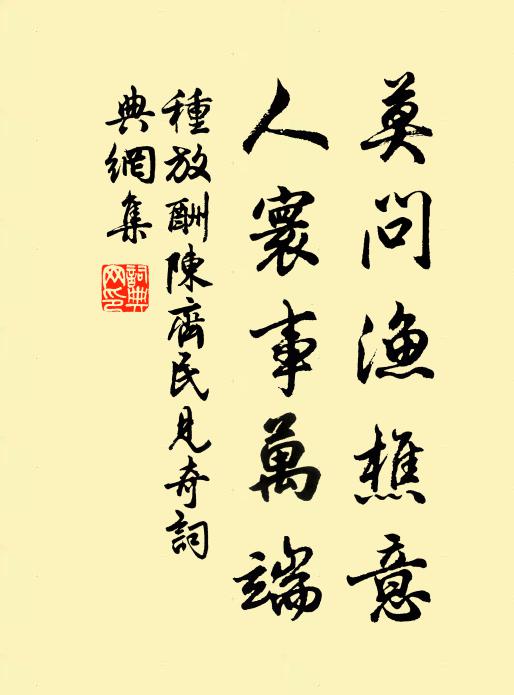 莫问渔樵意
人寰事萬端
種放酬陳齊民見奇詞
典網集
詞典
网印